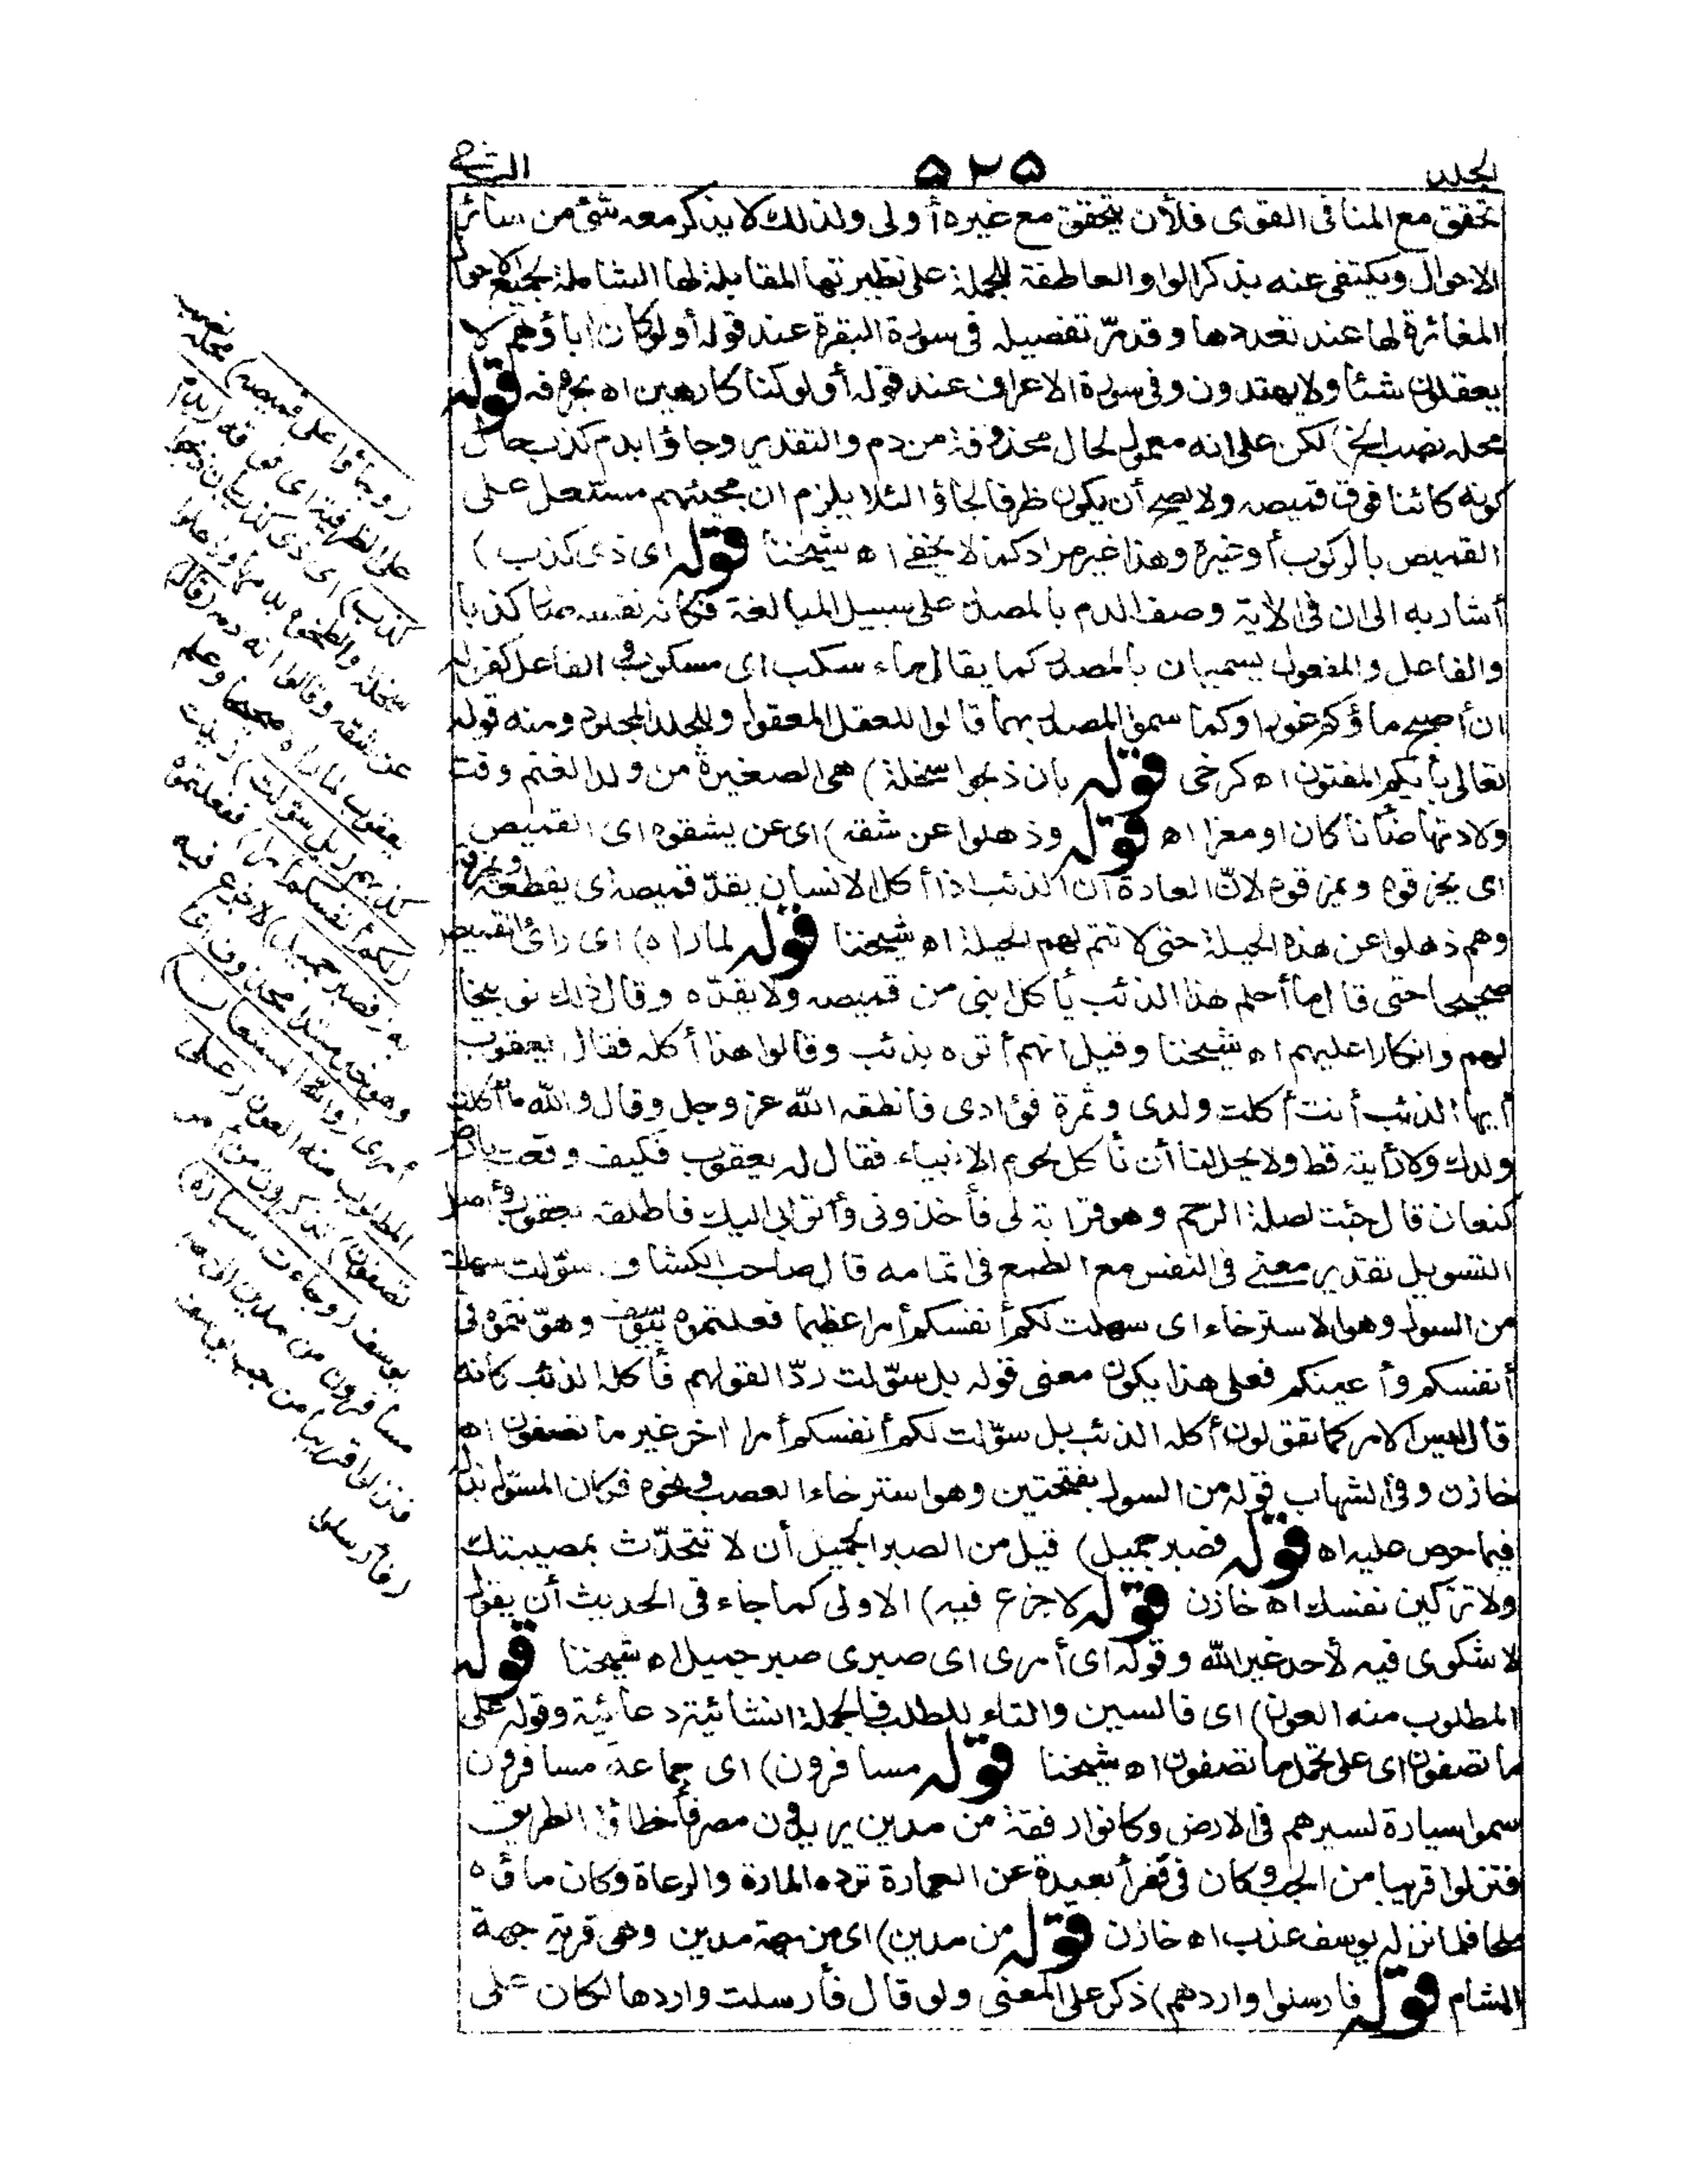 الجلد ٥٢٥ الثانى
تحقق مع المنافى القوى فلأن يتحقق مع غيره أولى ولذلك لا يذكر معه شئ من سائر
الاحوال ويكتفى عنه بذكر الواو العاطفة للجملة على نظيرتها المقابلة لها الشاملة لجميع الاحوال
المغائرة لها عند تعددها وقد مرّ تفصيله فى سورة البقرة عند قوله أولو كان اباؤهم لا
يعقلون شئا ولا يهتدون وفى سورة الاعراف عند قوله أولو كنا كارهين اه بحروفه قوله
محله نصب الخ) لكن على انه معمول لحال محذوفة من دم والتقدير وجاؤا بدم كذب حال
كونه كائنا فوق قميصه ولا يصح أن يكون ظرفا لجاؤا لئلا يلزم ان مجيئهم مستعل على
القميص بالركوب أو غيره وهذا غير مراد كما لا يخفى اه شيخنا قوله اى ذى كذب)
أشار به الى ان فى الاية وصف الدم بالمصدر على سبيل المبالغة فكانه نفسه صار كذبا
والفاعل والمفعول يسميان بالمصدر كما يقال ماء سكب اى مسكوب و الفاعل كقوله
ان أصبح ماؤكم غورا وكما سموا المصدر بهما قالوا للعقل المعقول وللجلد المجلود ومنه قوله
تعالى بأيكم المفتون اه كرخى قوله بان ذبحوا سخلة) هى الصغيرة من ولد الغنم وقت
ولادتها ضأنا كان او معزا اه قوله وذهلوا عن شقه) اى عن يشقوه اى القميص
اى يخرقوه ويمزقوه لانّ العادة ان الذئب اذا أكل الانسان يقدّ قميصه اى يقطعه ويخرقه
وهم ذهلوا عن هذه الحيلة حتى لا تتم لهم الحيلة اه شيخنا قوله لما راه) اى راى القميص
صحيحا حتى قال ما أحلم هذا الذئب يأكل ابنى من قميصه ولا يقدّه وقال ذلك توبيخا
لهم وانكارا عليهم اه شيخنا وقيل انهم أتوه بذئب وقالوا هذا أكله فقال يعقوب
أيها الذئب أنت أكلت ولدى وثمرة فؤادى فانطقه الله عز وجل وقال والله ما أكلت
ولدك ولا رأيته قط ولا يحل لنا أن نأكل لحوم الانبياء فقال له يعقوب فكيف وقعت بارض
كنعان قال جئت لصلة الرحم وهو قرابة لى فأخذونى وأتوا بى اليك فاطلقه يعقوب وأصل
التسويل تقدير معنى فى النفس مع الطمع فى اتمامه قال صاحب الكشاف سوّلت سهلت
من السول وهو الاسترخاء اى سهلت لكم أنفسكم أمرا عظيما فعلتموه بيوسف وهوّنتموه فى
أنفسكم وأعينكم فعلى هذا يكون معنى قوله بل سوّلت ردّا لقولهم فأكله الذئب كأنه
قال ليس الامر كما تقولون أكله الذئب بل سوّلت لكم أنفسكم أمرا اخر غير ما تصفون اه
خازن وفى الشهاب قوله من السول بفتحتين وهو استرخاء العصب ونحوه فكان المسوّل بذله
فيما حرص عليه اه قوله فصبر جميل) قيل من الصبر الجميل أن لا تتحدّث بمصيبتك
ولا تزكين نفسك اه خازن قوله لا جزع فيه) الاولى كما جاء فى الحديث أن يقول
لا شكوى فيه لأحد غير الله وقوله اى أمرى اى صبرى صبر جميل اه شيخنا قوله
المطلوب منه العون) اى فالسين والتاء للطلب فالجملة انشائية دعائية وقوله على
ما تصفون اى على تحمل ما تصفون اه شيخنا قوله مسافرون) اى جماعة مسافرون
سموا سيارة لسيرهم فى الارض وكانوا رفقة من مدين يريدون مصر فأخطاؤا الطريق
فنزلوا قريبا من الجب وكان فى قفرأ بعيدة عن العمارة ترده المارة والرعاة وكان ماؤه
ملحا فلما نزله يوسف عذب اه خازن قوله من مدين) اى من جهة مدين وهى قرية جهة
الشام قوله فارسلوا واردهم) ذكر على المعنى ولو قال فأرسلت واردها لكان على
(وجاؤا على قميصه) محله نصب
على الظرفية اى فوقه (بدم
كذب) اى ذى كذب بان ذبحوا
سخلة والطخوه بدمها وذهلوا
عن شقه وقالوا انه دمه (قال)
يعقوب لما راه صحيحا وعلم
كذبهم (بل سوّلت) زينت
(لكم أنفسكم أمرا) ففعلتموه
به (فصبر جميل) لا جزع فيه
وهو خبر مبتدا محذوف اى
أمرى (والله المستعان)
المطلوب منه العون (على
ما تصفون) تذكرون من أمر
يوسف (وجاءت سيارة)
مسافرون من مدين الى مصر
فنزلوا قريبا من جب يوسف
(فأرسلوا